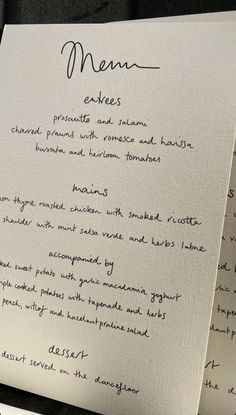 Menu
entrees
prosciutto and salami
charred prawns with romesco and harissa
burrata and heirloom tomatoes
mains
thyme roasted chicken with smoked ricotta
shoulder with mint salsa verde and herbs labne
accompanied by
sweet potato with garlic macadamia yoghurt
cooked potatoes with tapenade and herbs
peach, witlof and hazelnut praline salad
dessert
dessert served on the dancefloor